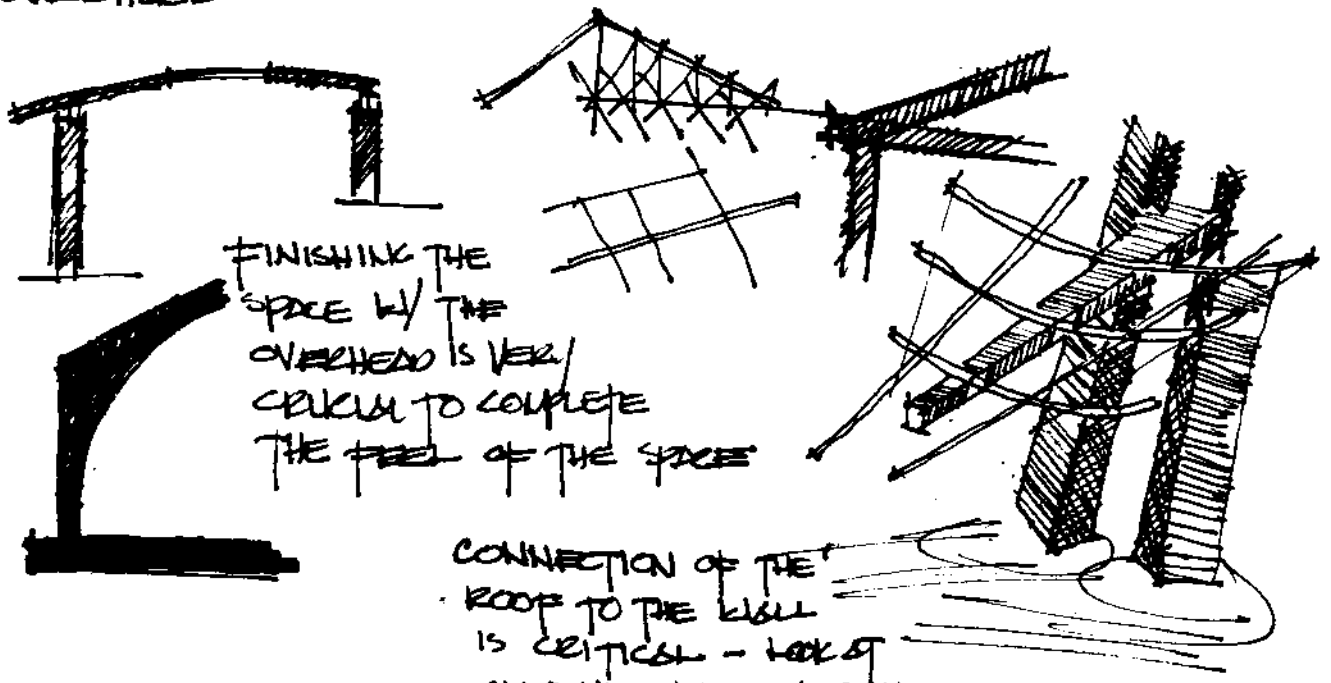 FINISHING THE
SPACE W/ THE
OVERHEAD IS VERY
CRUCIAL TO COMPLETE
THE FEEL OF THE SPACE
CONNECTION OF THE
ROOF TO THE WALL
IS CRITICAL – LOOK AT